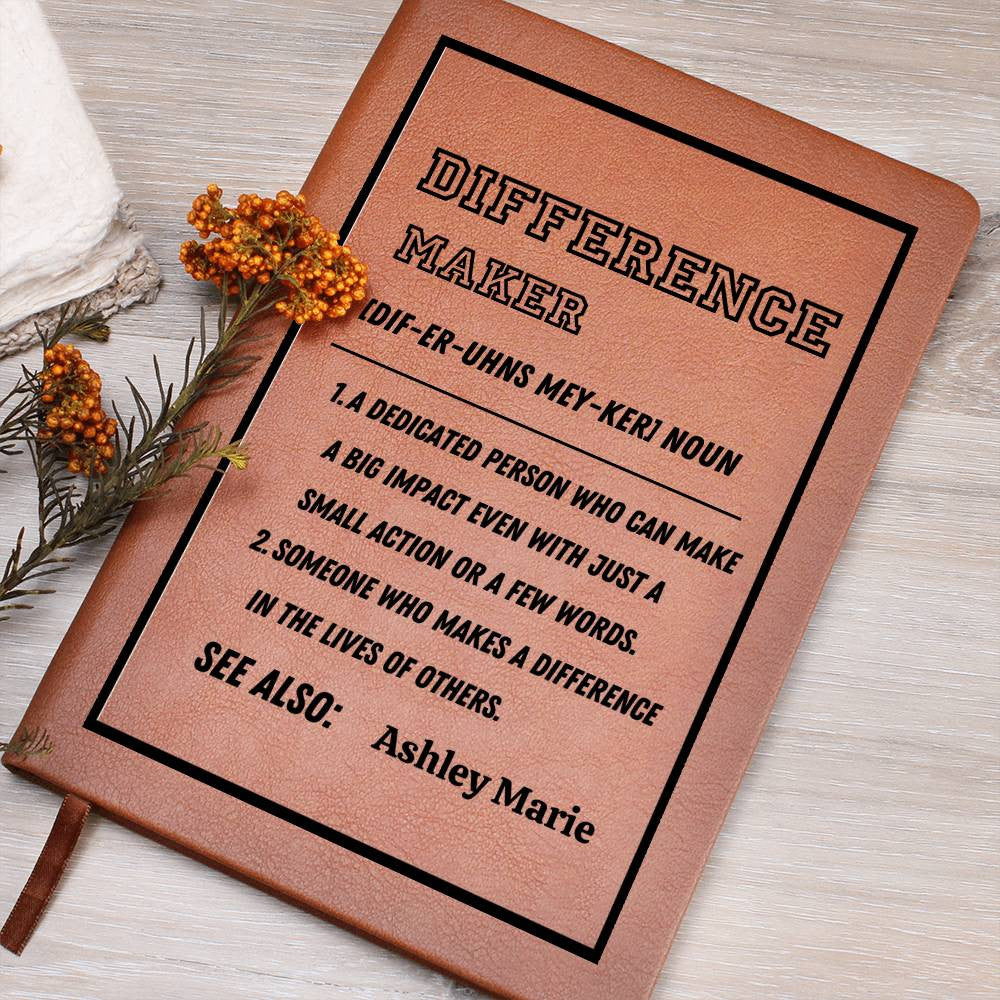 DIFFERENCE
MAKER
[DIF-ER-UHNS MEY-KER] NOUN
1. A DEDICATED PERSON WHO CAN MAKE
A BIG IMPACT EVEN WITH JUST A
SMALL ACTION OR A FEW WORDS.
2. SOMEONE WHO MAKES A DIFFERENCE
IN THE LIVES OF OTHERS.
SEE ALSO: Ashley Marie